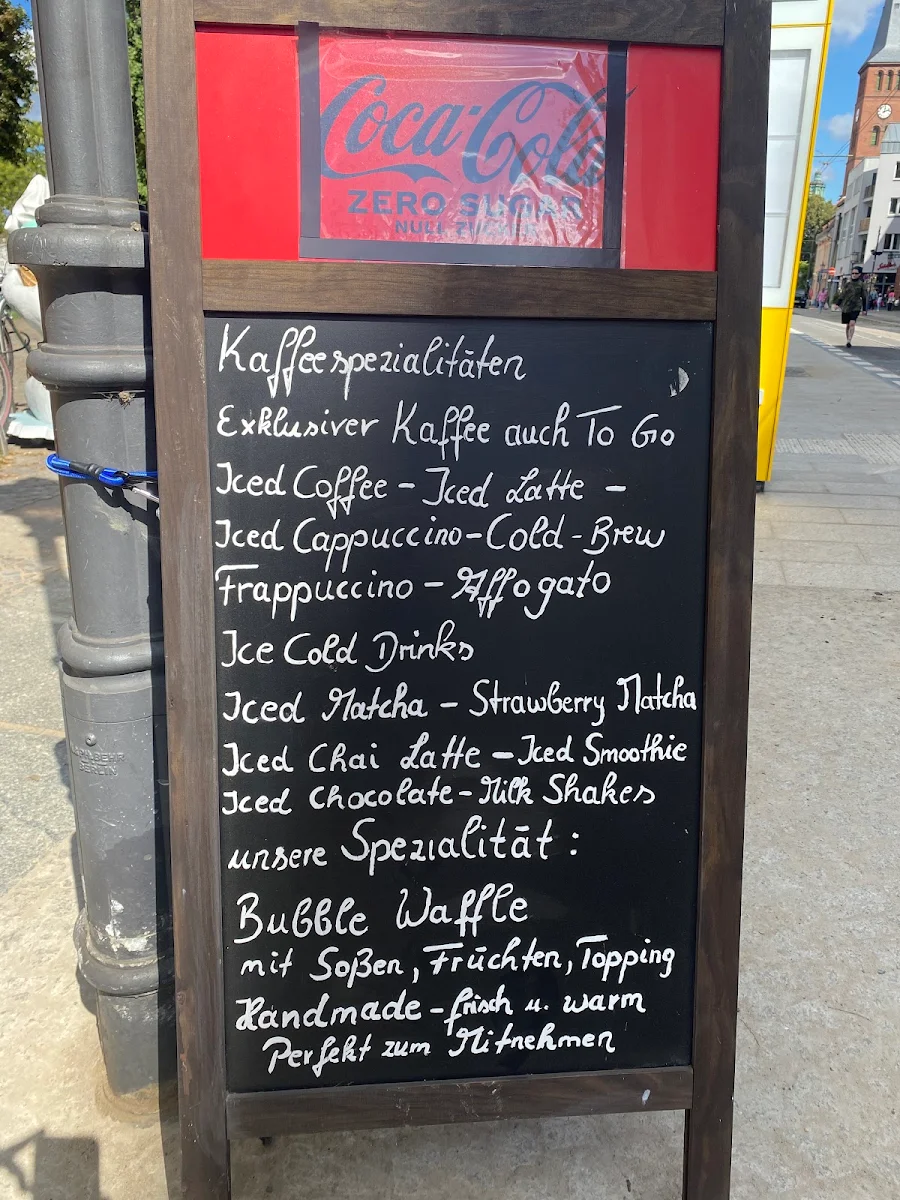 Coca-Cola
ZERO SUGAR
NULL ZUCKER
Kaffeespezialitäten
Exklusiver Kaffee auch To Go
Iced Coffee - Iced Latte -
Iced Cappuccino - Cold - Brew
Frappuccino - Affogato
Ice Cold Drinks
Iced Matcha - Strawberry Matcha
Iced Chai Latte - Iced Smoothie
Iced Chocolate - Milk Shakes
unsere Spezialität:
Bubble Waffle
mit Soßen, Früchten, Topping
Handmade - frisch u. warm
Perfekt zum Mitnehmen
BERLIN